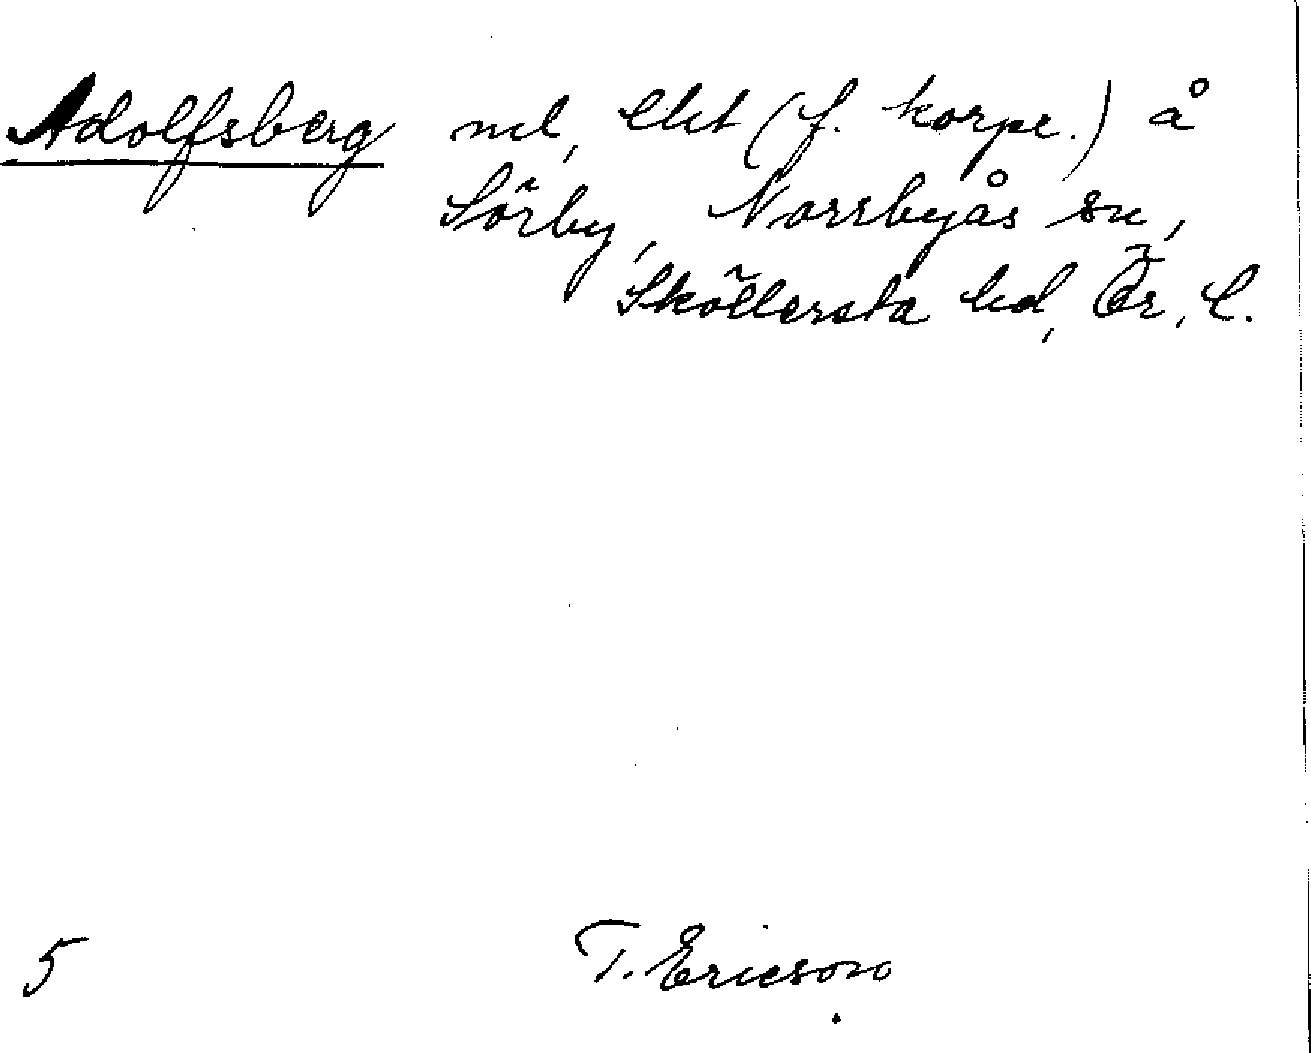 Adolfsberg nel, lht (f. korpr.) å
Sörby, Norrbyås sn,
Sköllersta hd, Ör. l.
5 T. Ericson